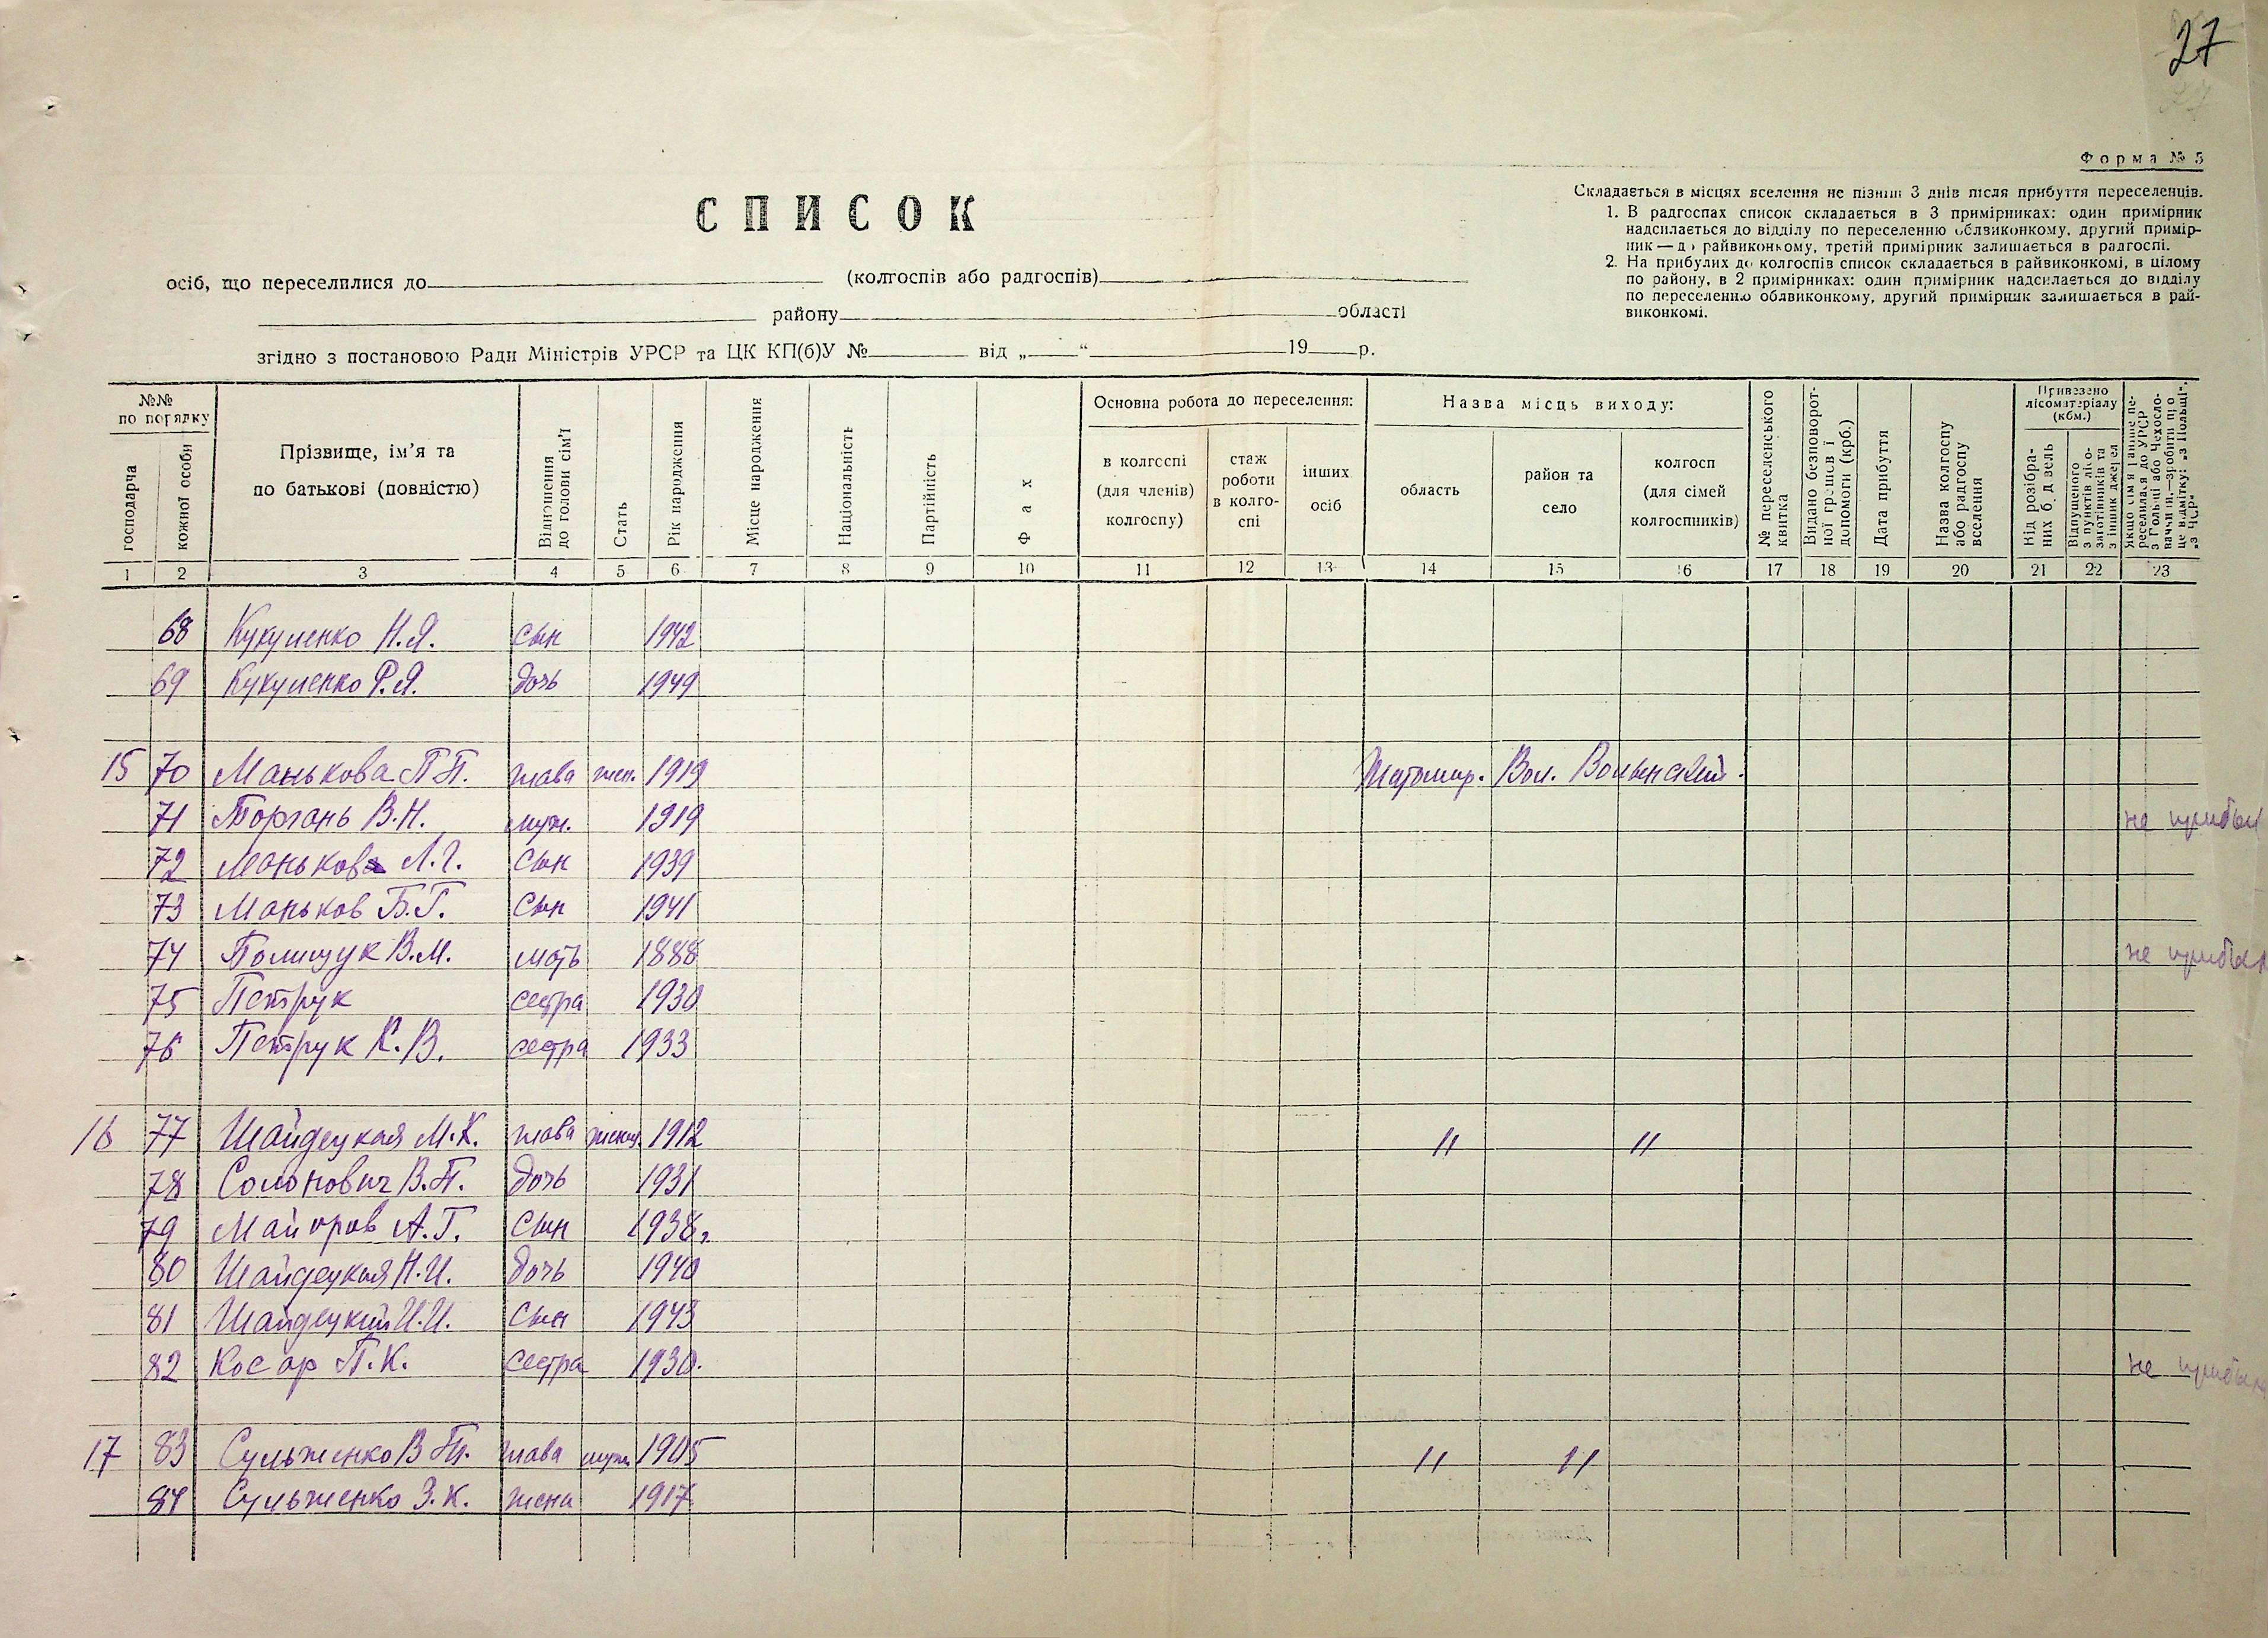 27
Форма № 5
Складається в місцях вселення не пізніш 3 днів після прибуття переселенців.
1. В радгоспах список складається в 3 примірниках: один примірник
надсилається до відділу по переселенню облвиконкому, другий примір-
ник — до райвиконкому, третій примірник залишається в радгоспі.
2. На прибулих до колгоспів список складається в райвиконкомі, в цілому
по району, в 2 примірниках: один примірник надсилається до відділу
по переселенню облвиконкому, другий примірник залишається в рай-
виконкомі.
СПИСОК
осіб, що переселилися до (колгоспів або радгоспів)
району області
згідно з постановою Ради Міністрів УРСР та ЦК КП(б)У № від „ “ 19 р.
№№ по порядку
господарча
кожної особи
Прізвище, ім'я та
по батькові (повністю)
Відношення до голови сім'ї
Стать
Рік народження
Місце народження
Національність
Партійність
Фах
Основна робота до переселення:
в колгоспі (для членів) колгоспу)
стаж роботи в колго-спі
інших осіб
Назва місць виходу:
область
район та село
колгосп (для сімей колгоспників)
№ переселенського квитка
Видано безповорот-ної грошев ї допомоги (крб.)
Дата прибуття
Назва колгоспу або радгоспу вселення
Привезено лісоматеріалу (кбм.)
Від розібра-них будівель
Відпущеного з пунктів лісо-заготівників та з інших джерел
Якщо сім'я раніше пе-реселилася до УРСР з Польщі або Чехосло-ваччини,—зробити про це відмітку: „з Польщі“, „з ЧСР“
1 2 3 4 5 6 7 8 9 10 11 12 13 14 15 16 17 18 19 20 21 22 23
68 Кукуленко Н.Я. сын 1942
69 Кукуленко Р.Я. дочь 1949
15 70 Манькова П.П. глава жен. 1919 Житомир. Вол. Волынский.
71 Торгань В.Н. муж. 1919 не прибыл
72 Маньков Л.Г. сын 1939
73 Маньков Б.Г. сын 1941
74 Полищук В.М. мать 1888 не прибыл
75 Петрук сестра 1930
76 Петрук К.В. сестра 1933
16 77 Шайдецкая М.К. глава женщ. 1912 " "
78 Солонович В.П. дочь 1931
79 Майоров А.Г. сын 1938.
80 Шайдецкая Н.И. дочь 1940
81 Шайдецкий И.И. сын 1943
82 Косар П.К. сестра 1930. не прибыл
17 83 Сульженко В.П. глава муж. 1905 " "
84 Сульженко З.К. жена 1917